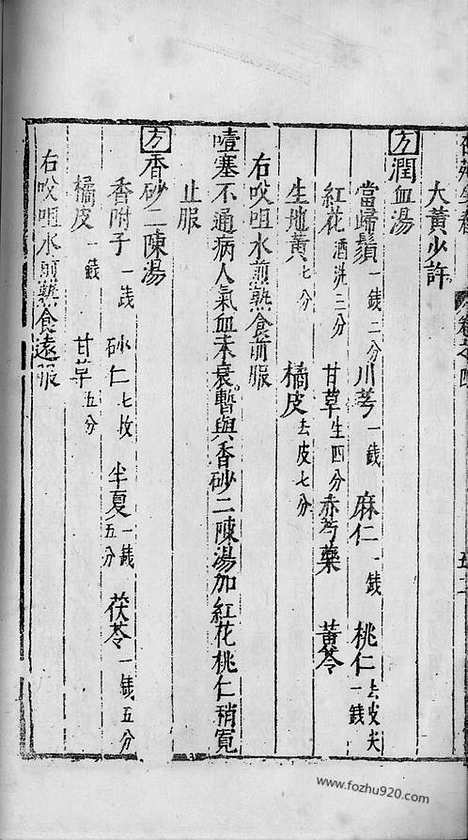 杏苑生春 卷之四 五二
大黃少許
方 潤血湯
當歸鬚一錢二分 川芎一錢 麻仁一錢 桃仁去皮尖一錢
紅花酒洗三分 甘草生四分 赤芍藥 黃芩
生地黃七分 橘皮去皮七分
右㕮咀水煎熟食前服
噎塞不通病人氣血未衰暫與香砂二陳湯加紅花桃仁稍寬
止服
方 香砂二陳湯
香附子一錢 砂仁七枚 半夏一錢五分 茯苓一錢五分
橘皮一錢 甘草五分
右㕮咀水煎熟食遠服
www.fozhu920.com